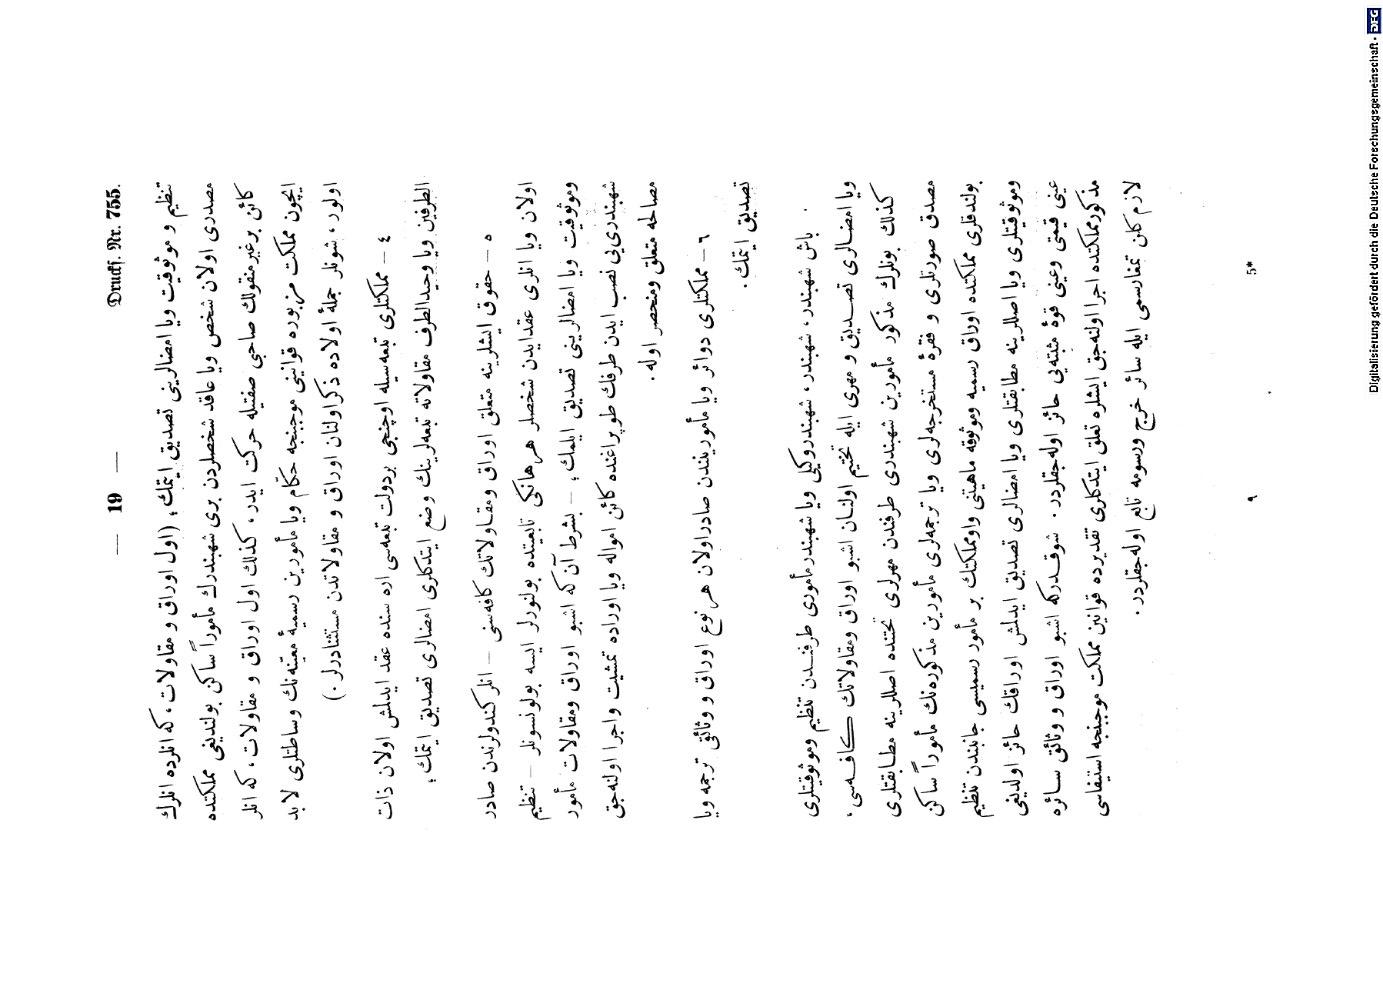 Drucks. Nr. 755.
— 19 —
تنظيم و موثوقيت ويا امضالرينى تصديق ايتمك، (اول اوراق و مقاولات، كه انلرده انلرك
مصدرى اولان شخص ويا عاقد شخصلردن برى شهبندرك مأموراً ساكن بولنديغى مملكتده
كائن برغير منقولك صاحبى صفتيله حركت ايدر، كذلك اول اوراق و مقاولات، كه انلر
ايچون مملكت مزبوره قوانينى موجبنجه حكام ويا مأمورين رسميۀ معينه‌نك وساطتلرى لا بد
اولور، شونلر جملۀ اولاده ذكر اولنان اوراق و مقاولاتدن مستثنادرلر.)
٤ — مملكتلرى تبعه‌سيله اوچنجى بردولت تبعه‌سى اره سنده عقد ايدلش اولان ذات
الطرفين ويا وحيدالطرف مقاولاته تبعه‌لرينك وضع ايتدكلرى امضالرى تصديق ايتمك؛
٥ — حقوق ايشلرينه متعلق اوراق ومقاولاتك كافه‌سنى — انلر كندولرندن صادر
اولان ويا انلرى عقدايدن شخصلر هرهانكى تابعيتده بولنورلر ايسه بولونسونلر — تنظيم
وموثوقيت ويا امضالرينى تصديق ايلمك؛ — بشرط آن كه اشبو اوراق ومقاولات مأمور
شهبندرى‌يى نصب ايدن طرفك طوپراغنده كائن امواله ويا اوراده تمشيت واجرا اولنه‌جق
مصالحه متعلق ومنحصر اوله.
٦ — مملكتلرى دوائر ويا مأموريندن صادراولان هر نوع اوراق و وثائقى ترجمه ويا
تصديق ايتمك.
باش شهبندر، شهبندر، شهبندر وكيلى ويا شهبندر مأمورى طرفندن تنظيم وموثوقيتلرى
ويا امضالرى تصديق و مهرى ايله تختيم اولنان اشبو اوراق ومقاولاتك كافه‌سى،
كذلك بونلرك مذكور مأمورين شهبندرى طرفندن مهرلرى تحتنده اصللرينه مطابقتلرى
مصدق صورتلرى و فقرۀ مستخرجه‌لرى ويا ترجمه‌لرى مأمورين مذكوره‌نك مأموراً ساكن
بولندقلرى مملكتده اوراق رسميه وموثوقه ماهيتى واومملكتك بر مأمور رسميسى جانبندن تنظيم
وموثوقيتلرى ويا اصللرينه مطابقتلرى ويا امضالرى تصديق ايدلش اوراقك حائز اولديغى
عينى قيمتى وعينى قوۀ مثبته‌يى حائز اوله‌جقلردر. شوقدركه اشبو اوراق و وثائق سائره
مذكورمملكتده اجرا اولنه‌جق ايشلره تعلق ايتدكلرى تقديرده قوانين مملكت موجبنجه استيفاسى
لازم كلن تمغارسمى ايله سائر خرج ورسومه تابع اوله‌جقلردر.
٩
5*
Digitalisierung gefördert durch die Deutsche Forschungsgemeinschaft - DFG